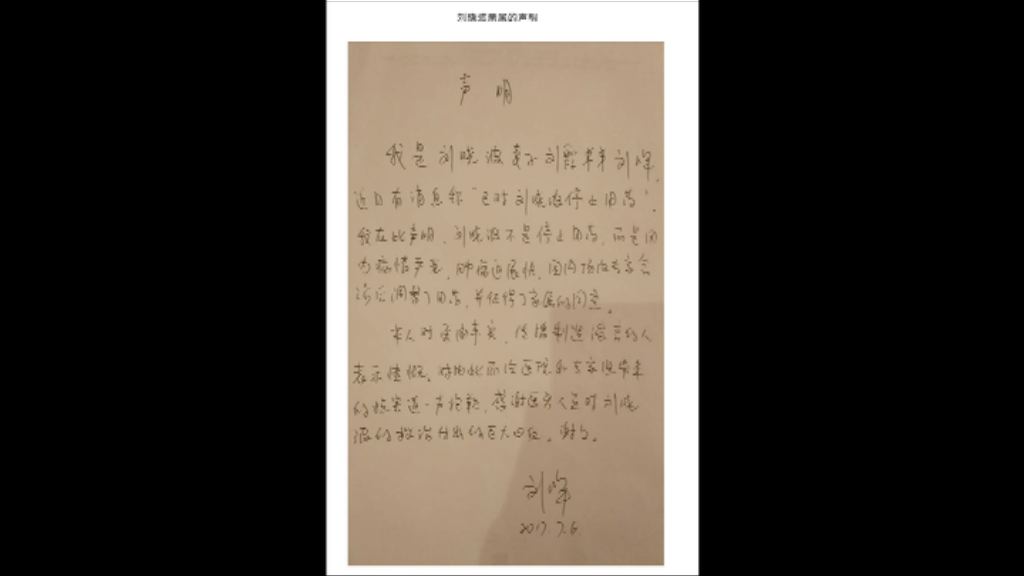 刘晓波亲属的声明
声 明
我是刘晓波妻子刘霞弟弟刘晖,
近日有消息称"已对刘晓波停止用药".
我在此声明,刘晓波不是停止用药,而是因
为病情严重,肿瘤进展快,国内顶级专家会
诊后调整了用药,并征得了家属的同意。
本人对歪曲事实,传播制造谣言的人
表示愤慨。对由此而给医院和专家组带来
的损害道一声抱歉,感谢医务人员对刘晓
波的救治付出的巨大
刘晖
2017.7.6.